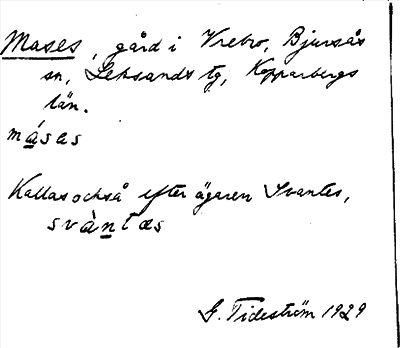 Mases, gård i Vrebro, Bjursås
sn, Leksands tg, Kopparbergs
län.
màsas
Kallas också efter ägaren Svantes,
svàntæs
G. Tideström 1929